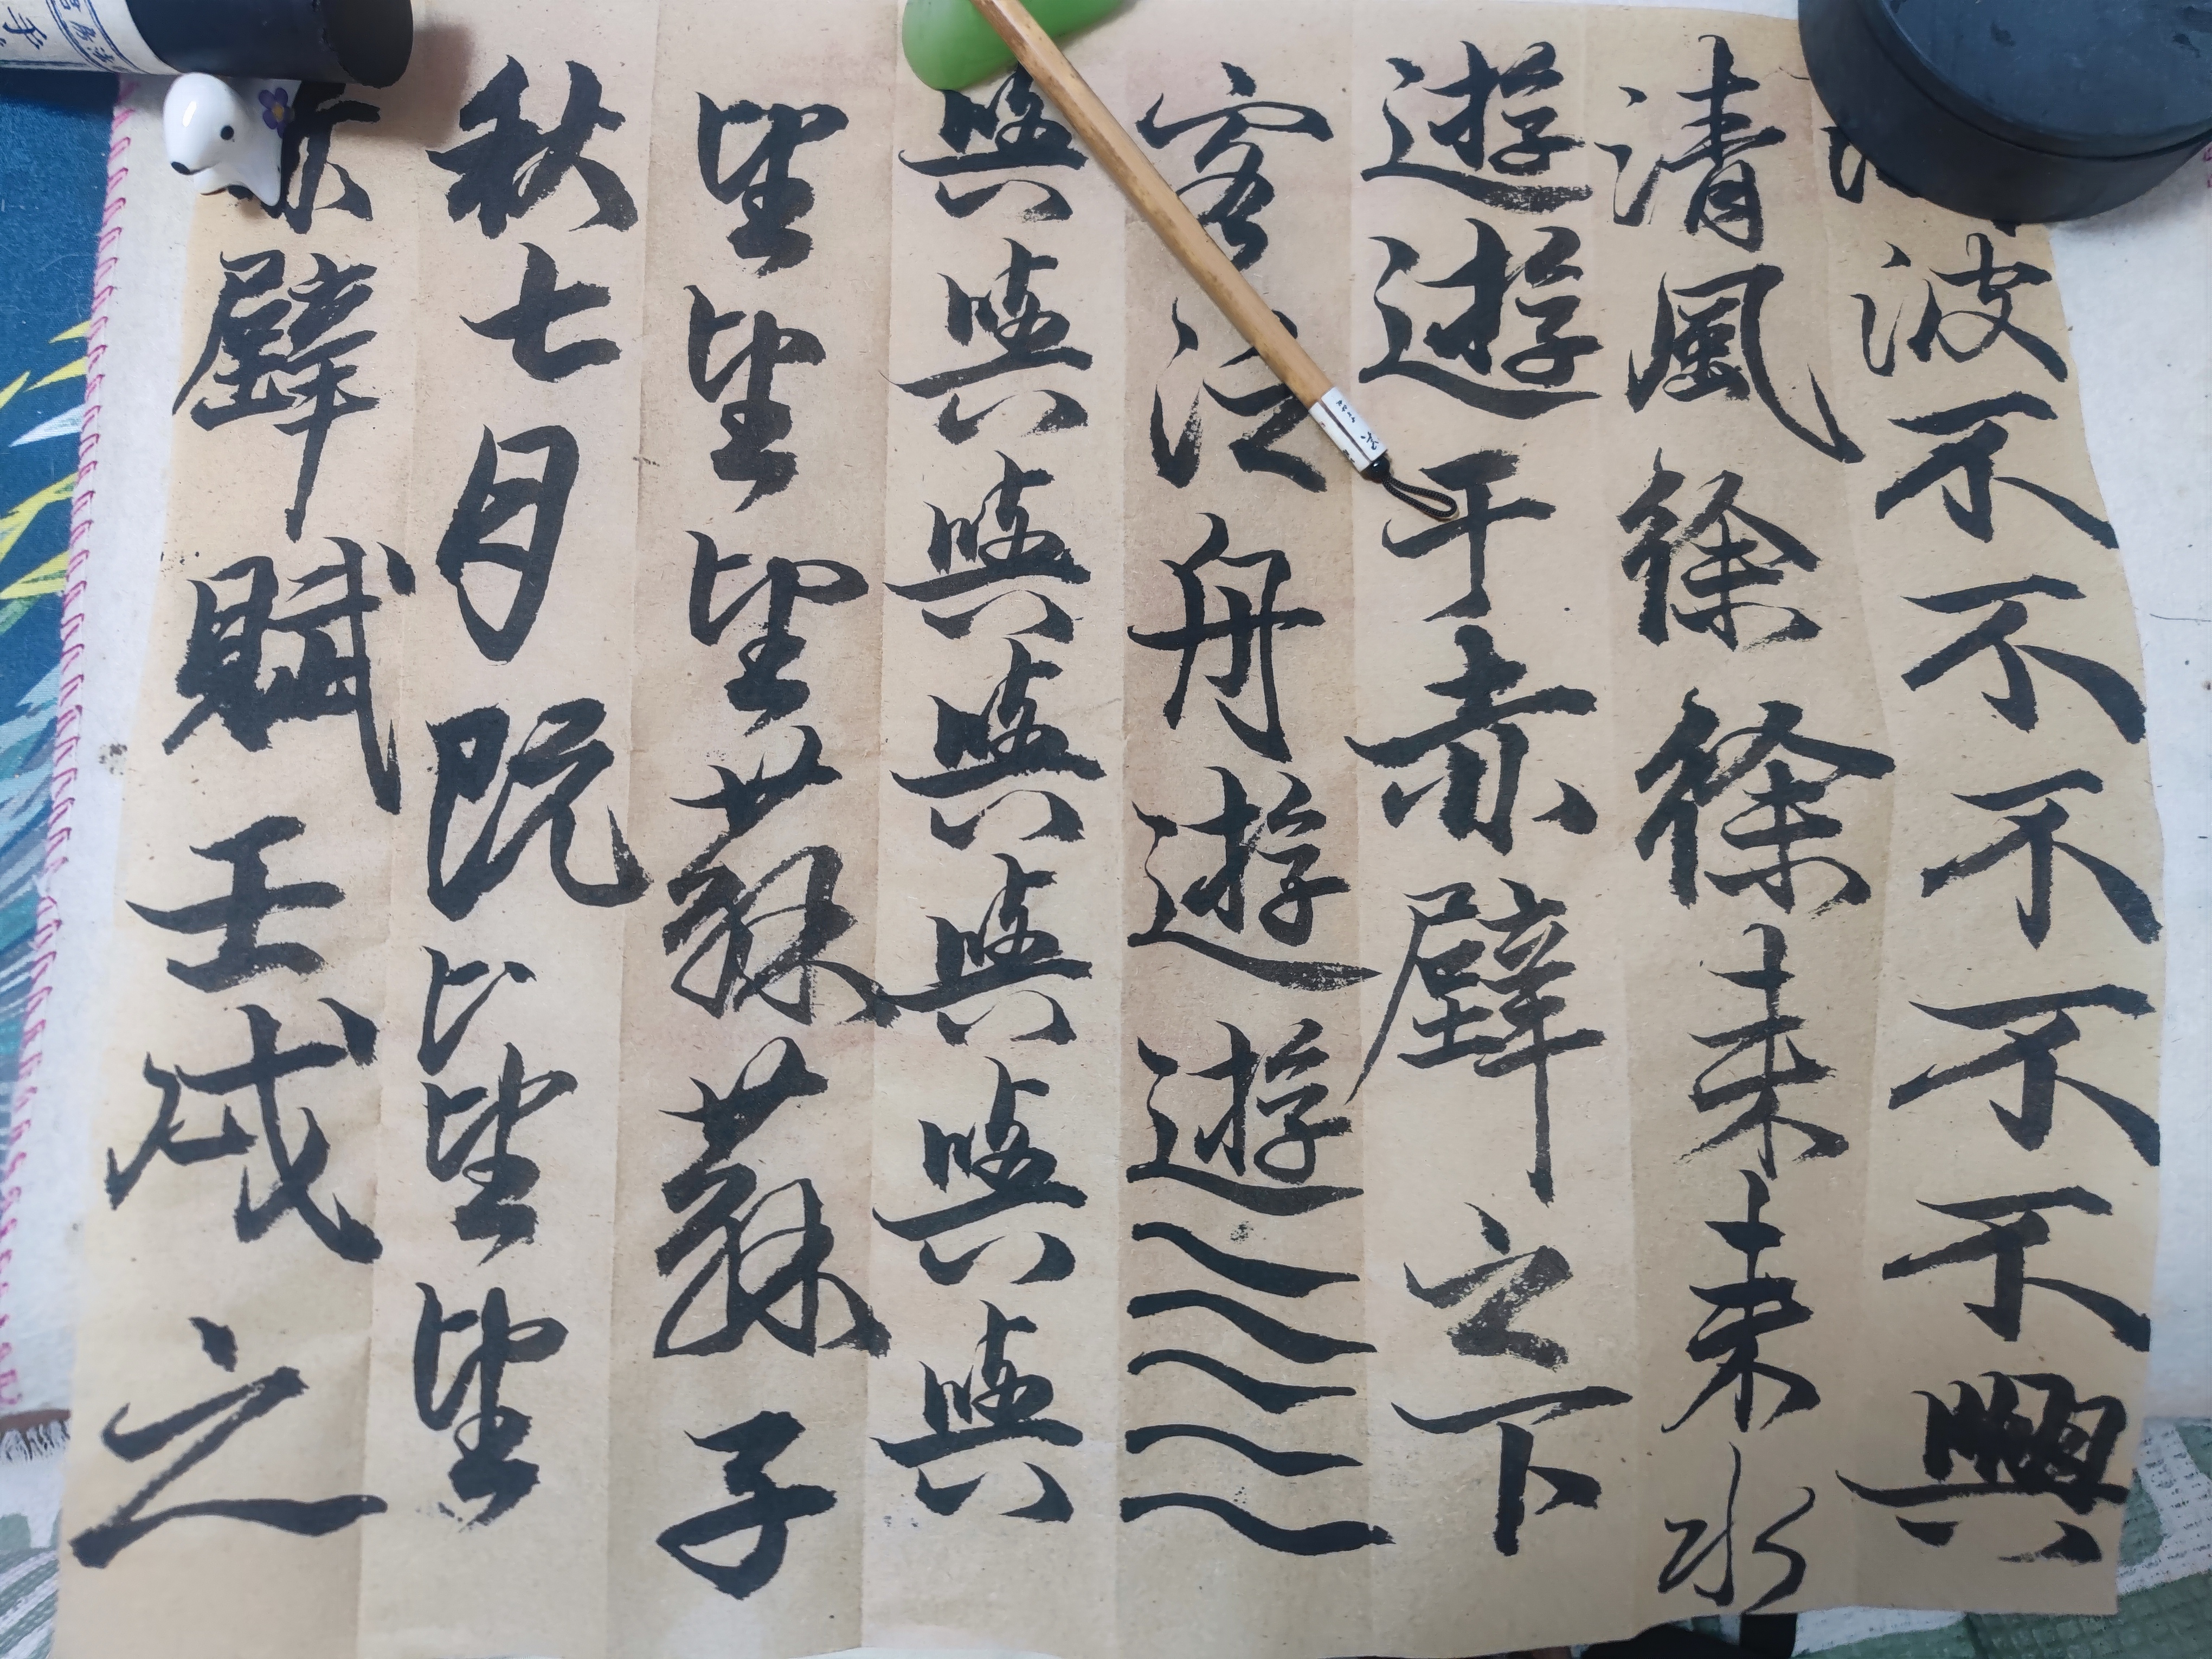 赤壁賦壬戌之
秋七月既望望
望望望蘇蘇子
與與與與與與與
客泛舟遊遊
遊遊于赤壁之下
清風徐徐来来水
波不不不不不興